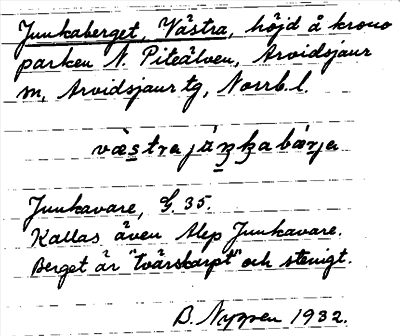 Junkaberget, Västra, höjd å krono
parken N. Piteälven, Arvidsjaur
sn, Arvidsjaur tg, Norrb. l.
Junkavare, G. 35.
Kallas även Alep Junkavare.
Berget är "tvärskarpt" och stenigt.
B. Nyzsen 1932.